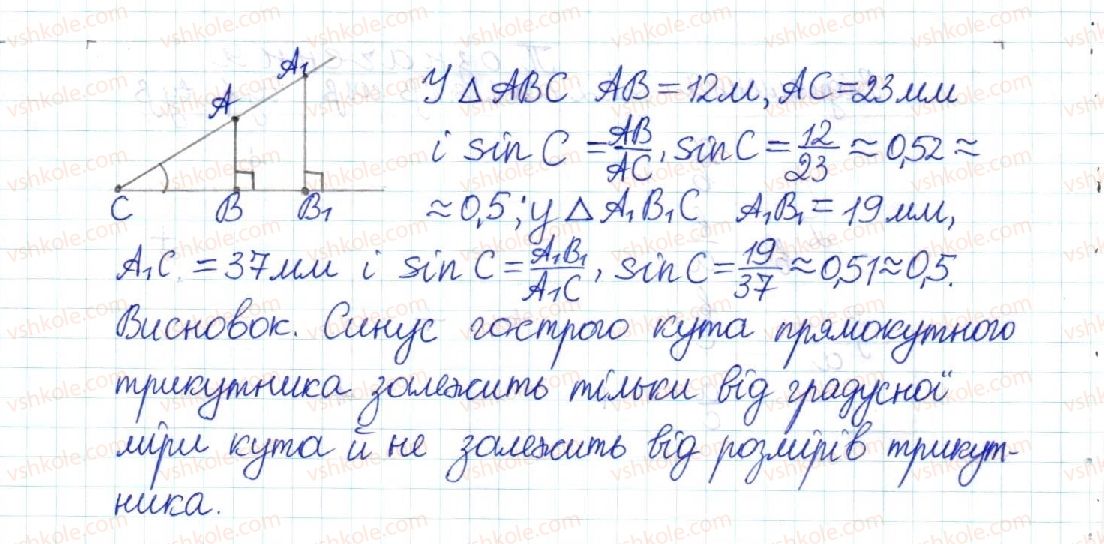 У △ABC AB = 12м, AC = 23мм
і sin C = AB/AC, sin C = 12/23 ≈ 0,52 ≈
≈ 0,5; у △A₁B₁C A₁B₁ = 19мм,
A₁C = 37мм і sin C = A₁B₁/A₁C, sin C = 19/37 ≈ 0,51 ≈ 0,5.
Висновок. Синус гострого кута прямокутного
трикутника залежить тільки від градусної
міри кута й не залежить від розмірів трикут-
ника.
A₁
A
C B B₁
vshkole.com